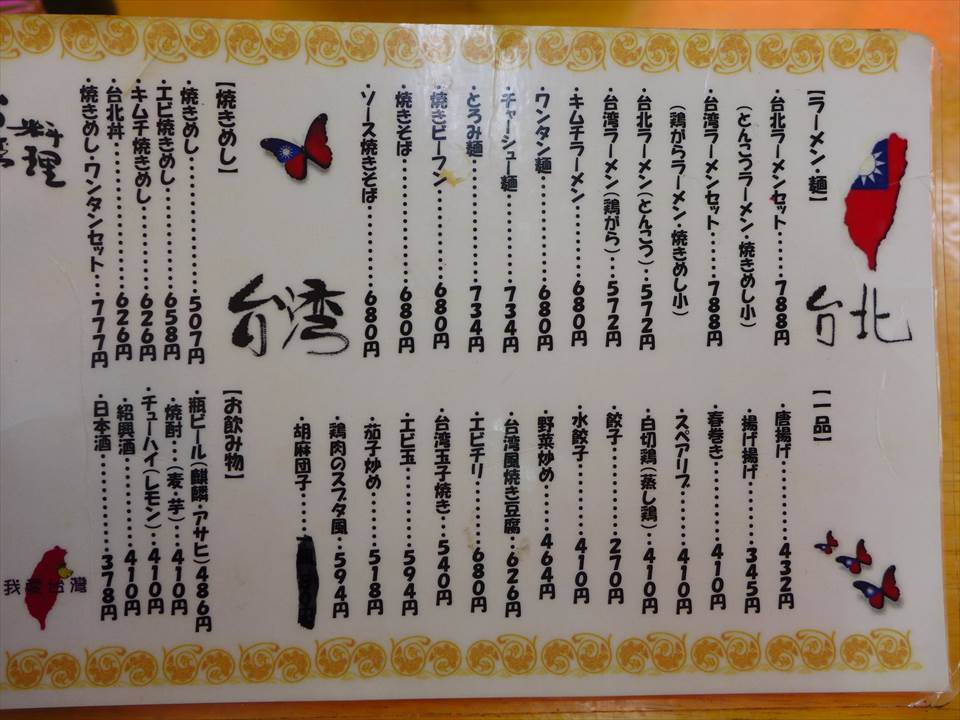 台北
【ラーメン・麺】
・台北ラーメンセット・・・・・788円
(とんこつラーメン・焼きめし小)
・台湾ラーメンセット・・・・・788円
(鶏がらラーメン・焼きめし小)
・台北ラーメン(とんこつ)・・572円
・台湾ラーメン(鶏がら)・・・572円
・キムチラーメン・・・・・・・・680円
・ワンタン麺・・・・・・・・・・680円
・チャーシュー麺・・・・・・・・734円
・とろみ麺・・・・・・・・・・・734円
・焼きビーフン・・・・・・・・・680円
・焼きそば・・・・・・・・・・・680円
・ソース焼きそば・・・・・・・・680円
台湾
【焼きめし】
・焼きめし・・・・・・・・・・・507円
・エビ焼きめし・・・・・・・・・658円
・キムチ焼きめし・・・・・・・・626円
・台北丼・・・・・・・・・・・・626円
・焼きめし・ワンタンセット・・・777円
料理
【一品】
・唐揚げ・・・・・・・・432円
・揚げ揚げ・・・・・・・345円
・春巻き・・・・・・・・410円
・スペアリブ・・・・・・410円
・白切鶏(蒸し鶏)・・・410円
・餃子・・・・・・・・・270円
・水餃子・・・・・・・・410円
・野菜炒め・・・・・・・464円
・台湾風焼き豆腐・・・・626円
・エビチリ・・・・・・・680円
・台湾玉子焼き・・・・・540円
・エビ玉・・・・・・・・594円
・茄子炒め・・・・・・・518円
・鶏肉のスブタ風・・・・594円
・胡麻団子・・・・
【お飲み物】
・瓶ビール(麒麟・アサヒ)486円
・焼酎・・・(麦・芋)・・・410円
・チューハイ(レモン)・・・410円
・紹興酒・・・・・・・・・410円
・日本酒・・・・・・・・・378円
我愛台灣